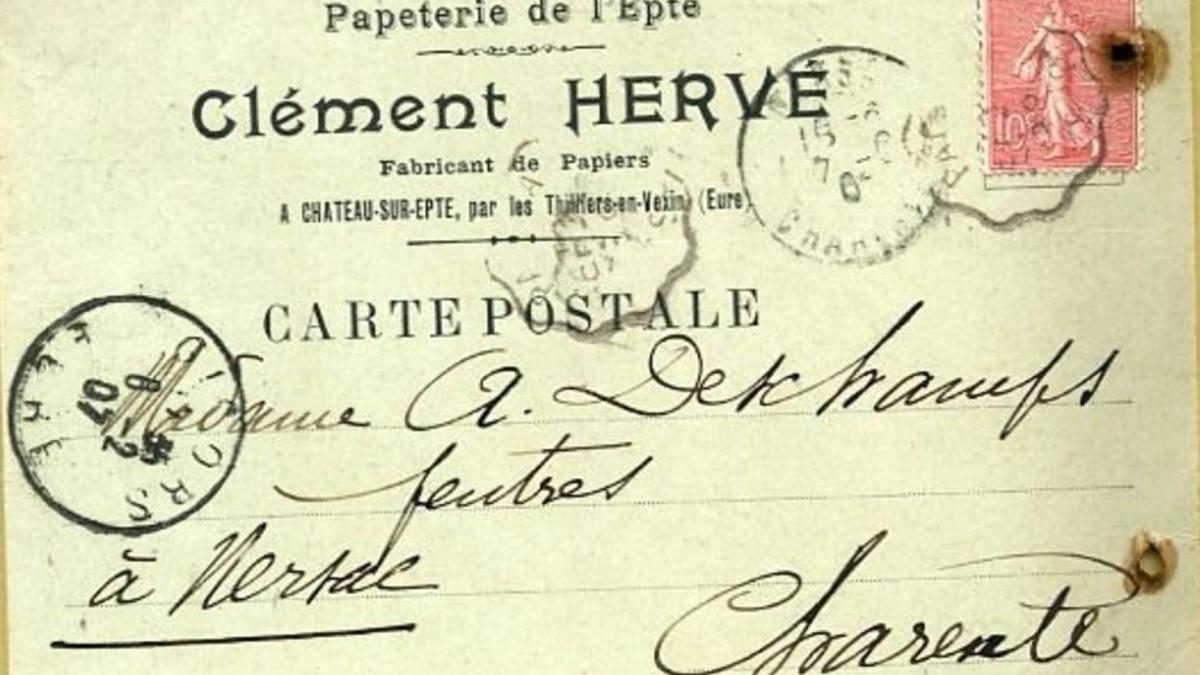 Papeterie de l'Epte
Clément HERVÉ
Fabricant de Papiers
A CHATEAU-SUR-EPTE, par les Thilliers-en-Vexin (Eure)
CARTE POSTALE
Madame A. Deschamps
feutres
à Nersac
Charente
10
GISORS
8 2
07
EURE
15
7